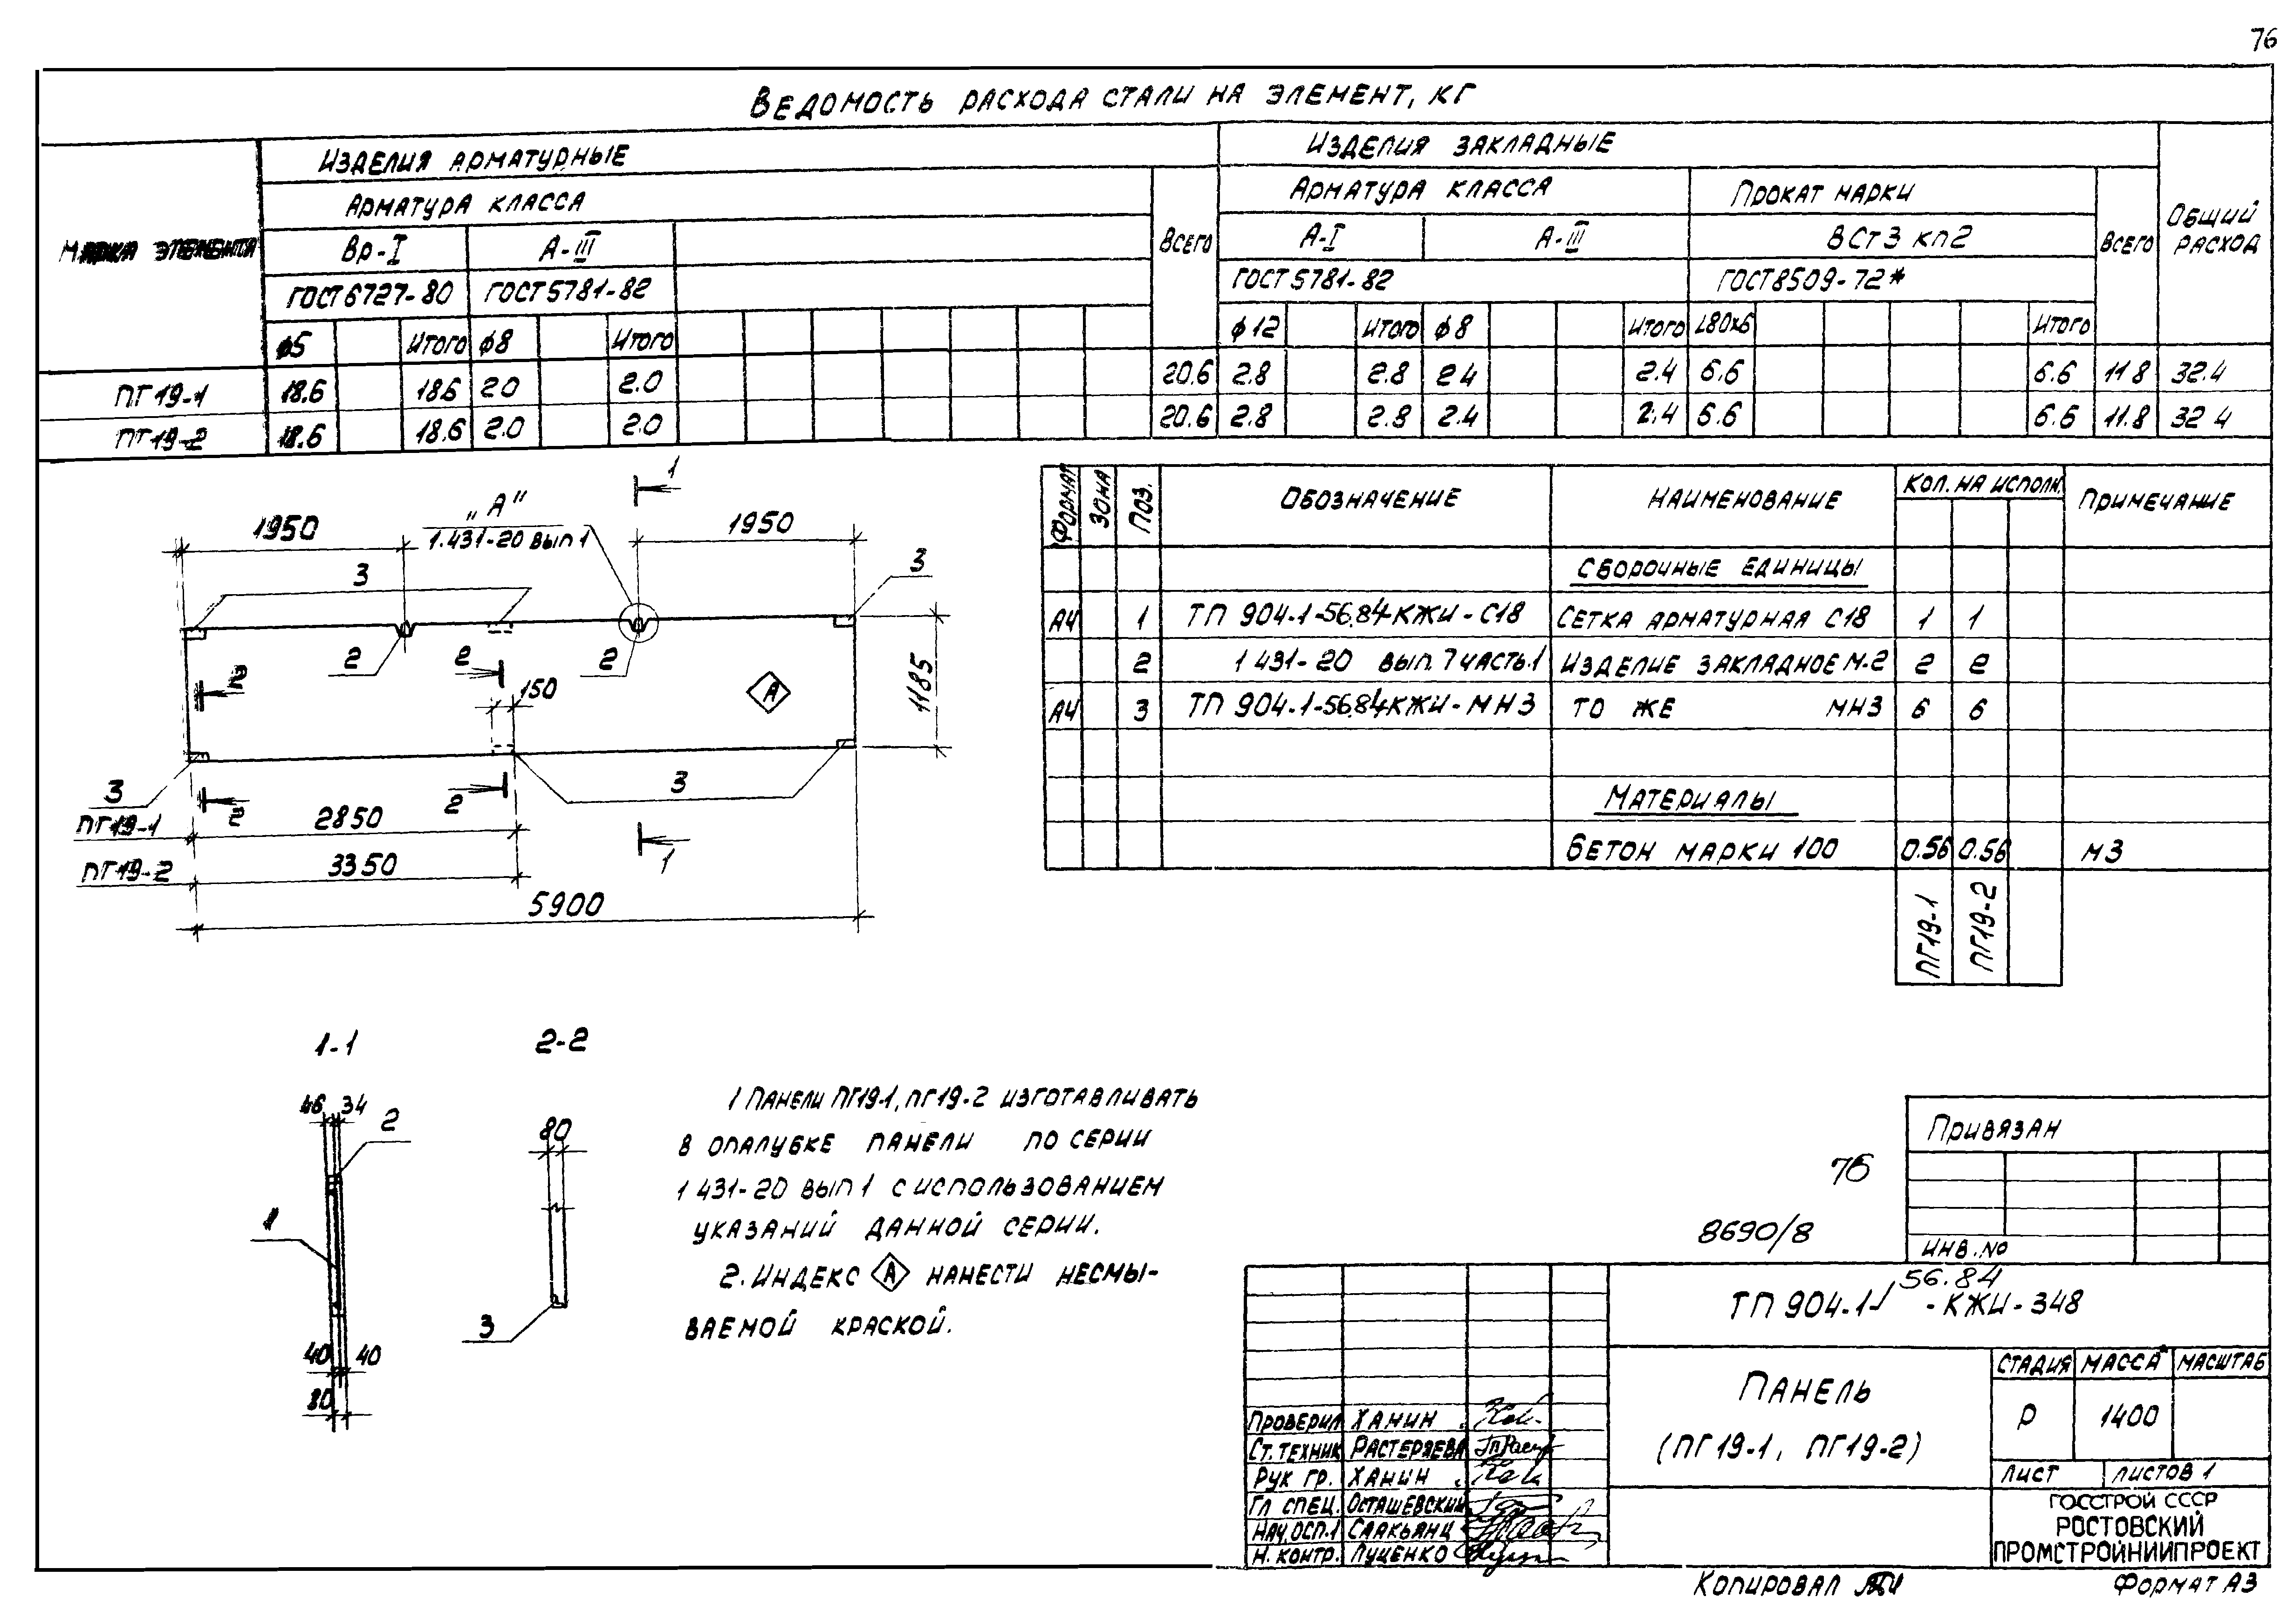 76
Ведомость расхода стали на элемент, кг
Марка элемента
Изделия арматурные
Изделия закладные
Общий расход
Арматура класса
Всего
Арматура класса
Прокат марки
Всего
Вр-I
А-III
А-I
А-III
ВСт3 кп2
ГОСТ 6727-80
ГОСТ 5781-82
ГОСТ 5781-82
ГОСТ 8509-72*
ф5 Итого ф8 Итого ф12 Итого ф8 Итого L80х6 Итого
ПГ19-1 18.6 18.6 20 2.0 20.6 2.8 2.8 24 2.4 6.6 6.6 118 32.4
ПГ19-2 18.6 18.6 2.0 2.0 20.6 2.8 2.8 2.4 2.4 6.6 6.6 11.8 32 4
1
1950
„А"
1.431-20 вып 1
1950
3
3
2
2
2
2
150
А
1185
3
2
2
3
ПГ19-1
2850
1
ПГ19-2
3350
5900
Формат
Зона
Поз.
Обозначение
Наименование
Кол. на исполн.
Примечание
Сборочные единицы
А4 1 ТП 904-1-56.84-КЖИ-С18 Сетка арматурная С18 1 1
2 1 431-20 вып. 7 часть.1 Изделие закладное М-2 2 2
А4 3 ТП 904-1-56.84-КЖИ-МН3 То же МН3 6 6
Материалы
Бетон марки 100 0.56 0.56 м3
ПГ19-1
ПГ19-2
1-1
46 34
2
1
40 40
80
2-2
80
3
1 Панели ПГ19-1, ПГ19-2 изготавливать
в опалубке панели по серии
1 431-20 вып 1 с использованием
указаний данной серии.
2. Индекс А нанести несмы-
ваемой краской.
76
8690/8
Привязан
Инв. №
56.84
ТП 904-1- -КЖИ-348
Панель
(ПГ19-1, ПГ19-2)
Стадия Масса Масштаб
Р 1400
Лист Листов 1
Госстрой СССР
Ростовский
Промстройниипроект
Проверил Ханин
Ст. техник Растеряева
Рук гр. Ханин
Гл спец. Осташевский
Нач. ОСП-1 Саакьянц
Н. контр. Луценко
Копировал
Формат А3